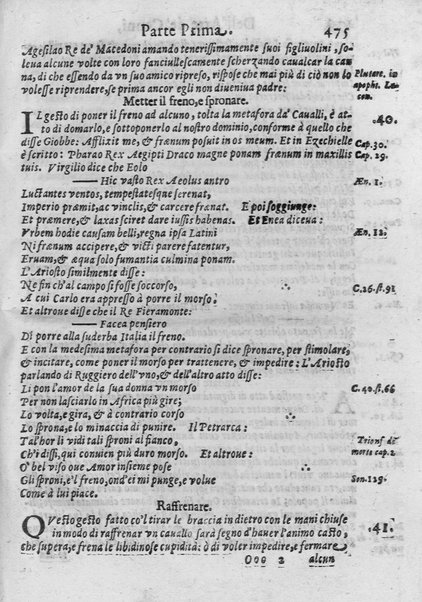 Parte Prima. 475
Agesilao Re de' Macedoni amando tenerissimamente suoi figliuolini, so-
leua alcune volte con loro fanciullescamente scherzando caualcar la can-
na, di che essendo da vn suo amico ripreso, rispose che mai più di ciò non lo
volesse riprendere, se prima ancor egli non diueniua padre:
Plutarc. in
apopht. La-
con.
Metter il freno, e spronare.
IL gesto di poner il freno ad alcuno, tolta la metafora da' Caualli, è at-
to di domarlo, e sottoponerlo al nostro dominio, conforme à quello che
disse Giobbe: Afflixit me, & frænum posuit in os meum. Et in Ezechielle
è scritto: Pharao Rex Aegipti Draco magne ponam frænum in maxillis
tuis. Virgilio dice che Eolo
40.
Cap. 30.
Cap. 29.
—— Hic vasto Rex Aeolus antro
Æn. 1.
Luctantes ventos, tempestatesque serenat,
Imperio præmit, ac vinclis, & carcere frænat. E poi soggiunge:
Et præmere, & laxas sciret dare iussis habenas. Et Enea diceua:
Vrbem hodie causam belli, regna ipsa Latini
Æn. 12.
Ni frænum accipere, & victi parere fatentur,
Eruam, & æqua solo fumantia culmina ponam.
L'Ariosto similmente disse:
Ne fin ch'al campo si fosse soccorso,
C. 26. st. 91
A cui Carlo era appresso à porre il morso:
Et altroue disse che il Re Fieramonte:
—— Facea pensiero
Di porre alla superba Italia il freno.
E con la medesima metafora per contrario si dice spronare, per stimolare,
& incitare, come poner il morso per trattenere, & impedire: L'Ariosto
parlando di Ruggiero dell'vno, & dell'altro atto disse:
Li pon l'amor de la sua donna vn morso
C. 40. st. 66
Per non lasciarlo in Africa più gire;
Lo volta, e gira, & à contrario corso
Lo sprona, e lo minaccia di punire. Il Petrarca:
Tal'hor li vidi tali sproni al fianco,
Trionf. de
morte cap. 2
Ch'i dissi, qui conuien più duro morso. Et altroue:
O bel viso oue Amor insieme pose
Gli sproni, e'l freno, ond'ei mi punge, e volue
Son. 129.
Come à lui piace.
Raffrenare.
QVesto gesto fatto co'l tirar le braccia in dietro con le mani chiuse
41.
in modo di raffrenar vn cauallo sarà segno d'hauer l'animo casto,
che supera, e frena le libidinose cupidità: ò di voler impedire, e fermare
Ooo 2 alcun